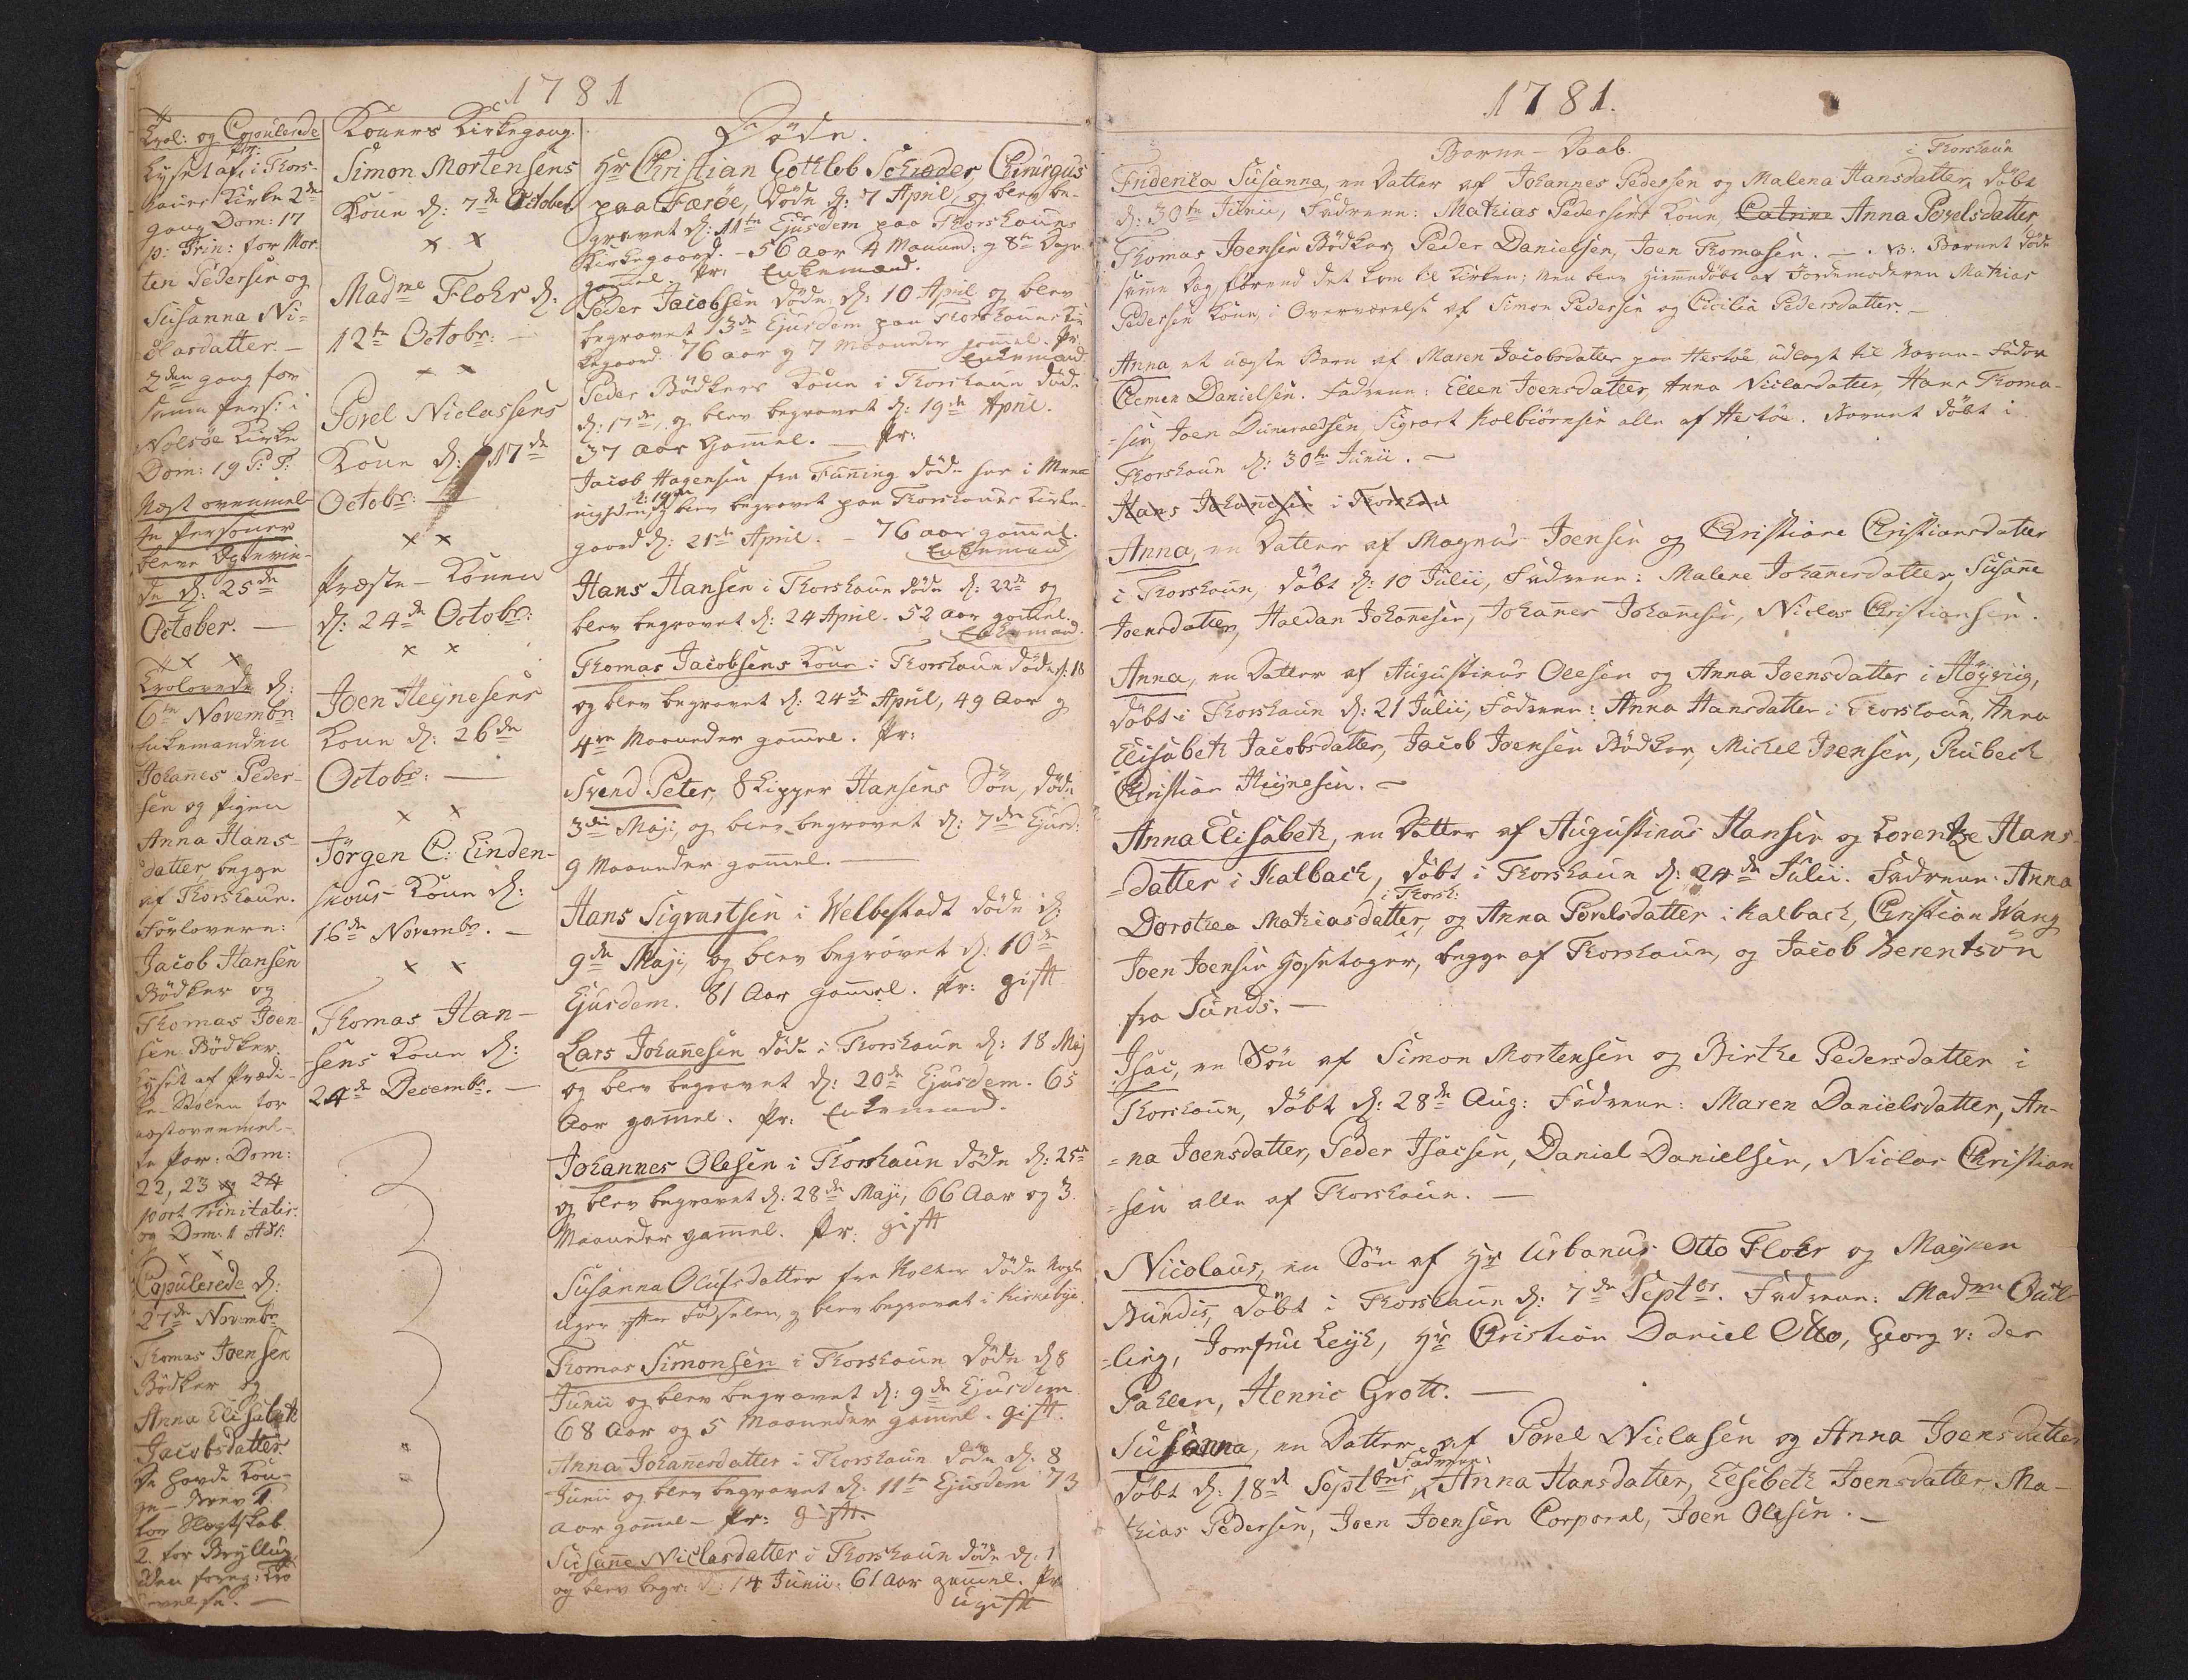 1781
Trol: og Copulerede
Lyst af i Thors-
hauns Kirke 2de
gang Dom: 17
p: Trin: for Mor-
ten Pedersen og
Susanna Ni-
clasdatter. –
2den gang for
samme Pers: i
Nolsöe Kirke
Dom: 19 P: T:
Næst ovenmel-
te Personer
bleve Ægtevie-
de d: 25de
October. –
x x x
Trolovede d:
6te Novembr:
Enkemanden
Johannes Peder-
sen og Pigen
Anna Hans-
datter begge
af Thorshaun.
Forlovere:
Jacob Hansen
Bödker og
Thomas Joen-
sen Bödker.
Lyst af Prædi-
ke-Stolen for
næstovenmel-
te Par: Dom:
22, 23 og 24
post Trinitatis.
og Dom: 1 Adv:
x x
Copulerede d:
27de Novembr
Thomas Joensen
Bödker og
Anna Elisabeth
Jacobsdatter.
De havde Kon-
ge-Brev 1.
for Slægtskab
2. for Bryllup
uden foreg: Tro-
lovelse. –
Koners Kirkegang.
Simon Mortensens
Kone d: 7de October
x x
Madme Flohr d:
12te Octobr: –
x x
Povel Niclassens
Kone d: 17de
Octobr: –
x x
Præste-Konen
d: 24de Octobr:
x x
Joen Heÿnesens
Kone d: 26de
Octobr: –
x x
Jörgen C: Linden-
skous Kone d:
16de Novembr. –
x x
Thomas Han-
sens Kone d:
24de Decembr. –
Döde.
Hr Christian Gottlob Schræder Chirurgus
paa Færöe, döde d: 7 April, og blev be-
gravet d: 11te Ejusdem paa Thorshauns
Kirkegaard. – 56 aar 4 Maaned: og 8te Dage
gammel. Pr: Enkemand.
Peder Jacobsen döde d: 10 April og blev
begravet 13de Ejusdem paa Thorshauns Kir-
kegaard. 76 aar og 7 Maaneder gammel. Pr:
Enkemand.
Peder Bödkers Kone i Thorshaun döde
d: 17de, og blev begravet d: 19de April.
37 aar Gammel. – Pr:
Jacob Hagensen fra Funing döde her i Mee-
d: 19de
nigheden, og blev begravet paa Thorshauns Kirke-
gaard d: 21de April. – 76 aar gammel.
Enkemand
Hans Hansen i Thorshaun döde d: 22de og
blev begravet d: 24 April. 52 aar gammel.
Enkemand.
Thomas Jacobsens Kone i Thorshaun döde d: 18
og blev begravet d: 24de April, 49 Aar og
4re Maaneder gammel. Pr:
Svend Peter, Skipper Hansens Sön, döde
3die Maji, og blev begravet d: 7de Ejusd:
9 Maaneder gammel. –
Hans Sigvartsen i Welbestadt döde d:
9de Maji, og blev begravet d: 10de
Ejusdem. 81 Aar gammel. Pr: gift
Lars Johannesen döde i Thorshaun d: 18 Maj
og blev begravet d: 20de Ejusdem. 65
Aar gammel. Pr: Enkemand.
Johannes Olesen i Thorshaun döde d: 25de
og blev begravet d: 28de Maji, 66 Aar og 3
Maaneder gammel. Pr: gift
Susanna Olufsdatter fra Kolter döde Nogle
uger efter Födselen, og blev begravet i Kirkebye.
Thomas Simonsen i Thorshaun döde d 8
Junii og blev begravet d: 9de Ejusdem
68 Aar og 5 Maaneder gammel. gift.
Anna Johannesdatter i Thorshaun döde d: 8
Junii og blev begravet d: 11te Ejusdem 73
aar gammel – Pr: gift.
Susanne Niclasdatter i Thorshaun döde d: 1
og blev begr: d: 14 Junii: 61 Aar gammel. Pr
ugift
1781.
Barne-Daab.
i Thorshaun
Friderica Susanna, en Datter af Johannes Pedersen og Malena Hansdatter, döbt
d: 30te Junii, Fadrene: Mathias Pedersens Kone, Catrine Anna Povelsdatter
Thomas Joensen Bödker, Peder Danielsen, Joen Thomasen. – NB: Barnet döde
samme Dag förend det kom til Kirken; men blev hiemmedöbt af Jordemoderen Mathias
Pedersens Kone, i Overværelse af Simon Pedersen og Cicilia Pedersdatter. –
Anna et uægte Barn af Maren Jacobsdatter paa Hestöe udlagt til Barne-Fader
Clemen Danielsen. Fadrene: Ellen Joensdatter, Anna Niclasdatter, Hans Thoma-
=sen, Joen Dimunodsen, Sigvart Kolbiörnsen alle af Hestöe. Barnet döbt i
Thorshaun d: 30te Junii. –
Hans Johannesen i Thorshau
Anna, en Datter af Magnus Joensen og Christiane Christiansdatter
i Thorshaun, döbt d: 10 Julii, Fadrene: Malene Johannesdatter, Susanne
Joensdatter, Haldan Johannesen, Johannes Johannesen, Niclas Christiansen.
Anna, en Datter af Augustinus Olesen og Anna Joensdatter i Höÿviig,
döbt i Thorshaun d: 21 Julii, Fadrene: Anna Hansdatter i Thorshaun, Anna
Elisabeth Jacobsdatter, Jacob Joensen Bödker, Michel Joensen, Rubech
Christian Heÿnesen. –
Anna Elisabeth, en Datter af Augustinus Hansen og Lorentze Hans-
=datter i Kalbach, döbt i Thorshaun d: 24de Julii. Fadrene: Anna
i Thorsh:
Dorothea Mathiasdatter, og Anna Povelsdatter i Kalbach, Christian Wang
Joen Joensen Hosetager, begge af Thorshaun, og Jacob Berentsön
fra Sunds. –
Isac, en Sön af Simon Mortensen og Birthe Pedersdatter i
Thorshaun, döbt d: 28de Aug: Fadrene: Maren Danielsdatter, An-
=na Joensdatter, Peder Isacsen, Daniel Danielsen, Niclas Christian
=sen alle af Thorshaun. –
Nicolaus, en Sön af Hr Urbanus Otto Flohr og Maÿken
Bundis, döbt i Thorshaun d: 7de Septbr. Fadrene: Madme Quil-
=ling, Jomfru Leÿh, Hr Christian Daniel Otto, Georg v: der
Pahlen, Henric Grott. –
Susanna, en Datter af Povel Niclasen og Anna Joensdatter
Fadrene:
döbt d: 18de Septbris, Anna Hansdatter, Elsebeth Joensdatter, Ma-
thias Pedersen, Joen Joensen Corporal, Joen Olesen. –